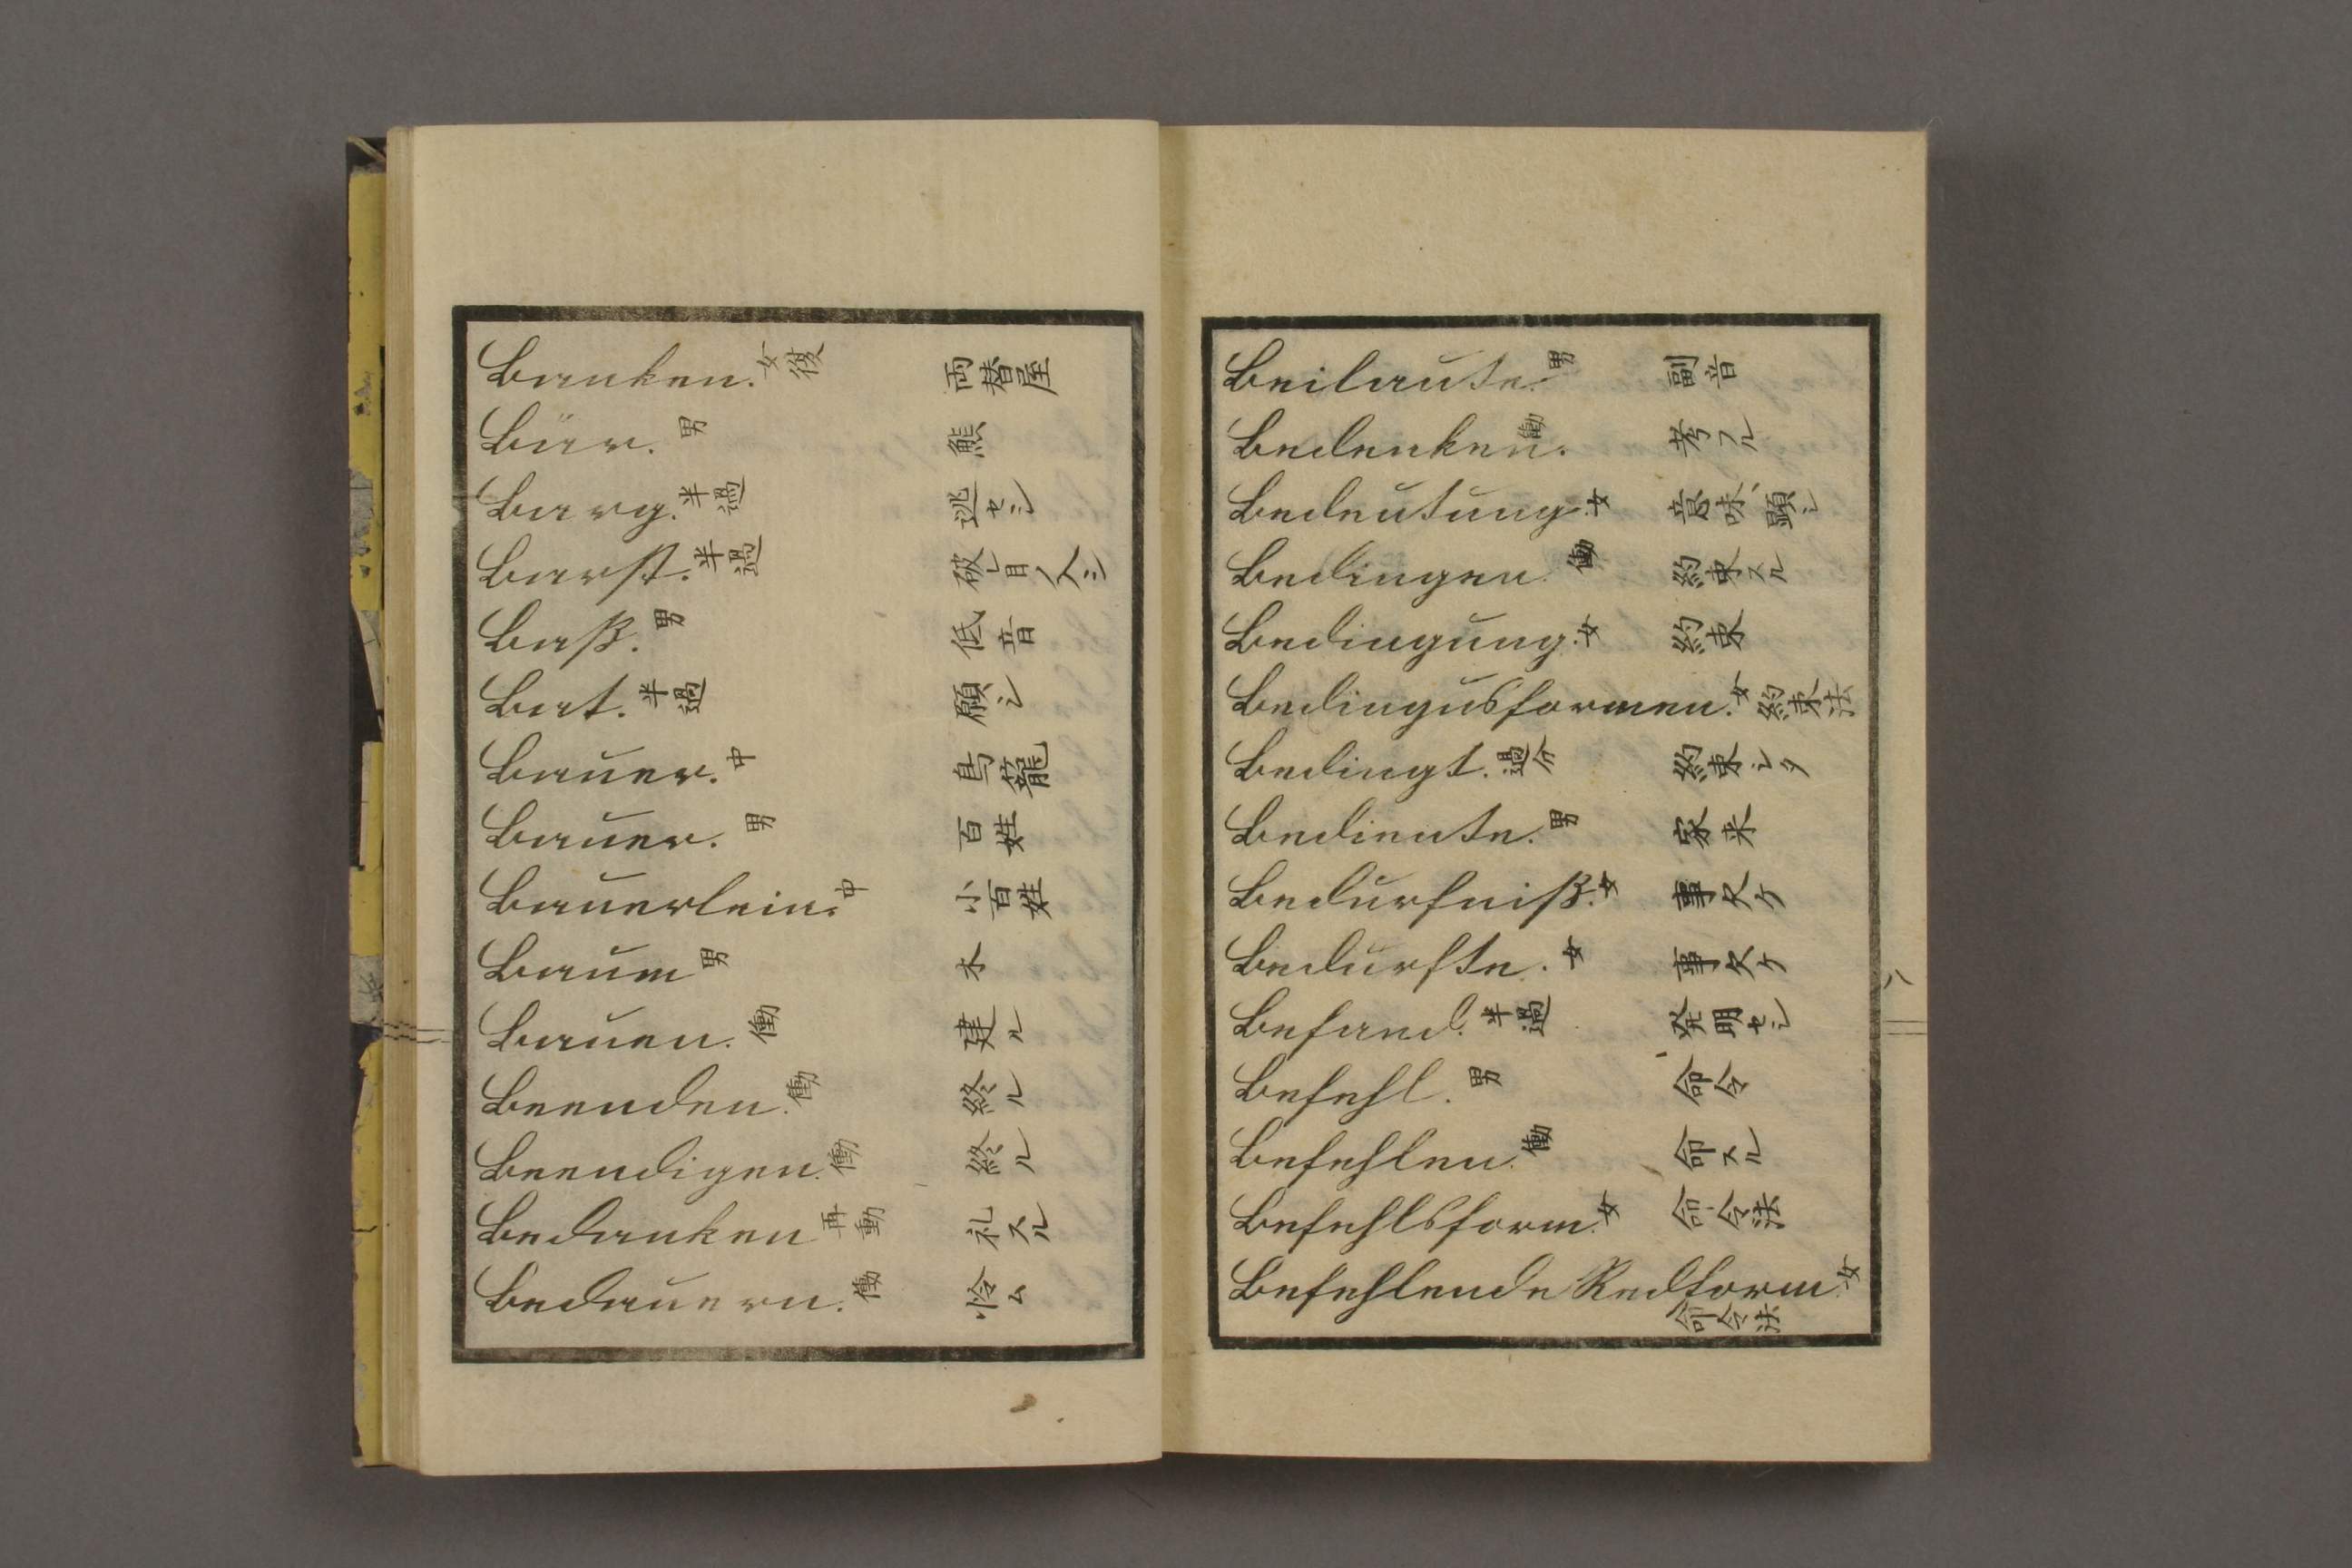 Banken. 女複 両替屋
Bär. 男 熊
Barg. 半過 逃セシ
Barst. 半過
Baß. 男 低音
Bat. 半過 願シ
Bauer. 中 鳥籠
Bauer. 男 百姓
Bauerlein. 中 小百姓
Baum 男 木
Bauen. 働 建ル
Beenden. 働 終ル
Beendigen. 働 終ル
Bedanken 再動 礼スル
Bedauern. 働 怜ム
Beilaute. 男 副音
Bedenken. 働 考フル
Bedeutung. 女 意味、顕シ
Bedingen. 働 約束スル
Bedingung. 女 約束
Bedingusformen. 女 約束法
Bedingt. 過分 約束シタ
Bediente. 男 家来
Bedürfniß. 女 事欠ケ
Bedürfte. 女 事欠ケ
Befand. 半過 発明セシ
Befehl. 男 命令
Befehlen. 働 命スル
Befehlsform. 女 命令法
Befehlende Redform. 女
命令法
八